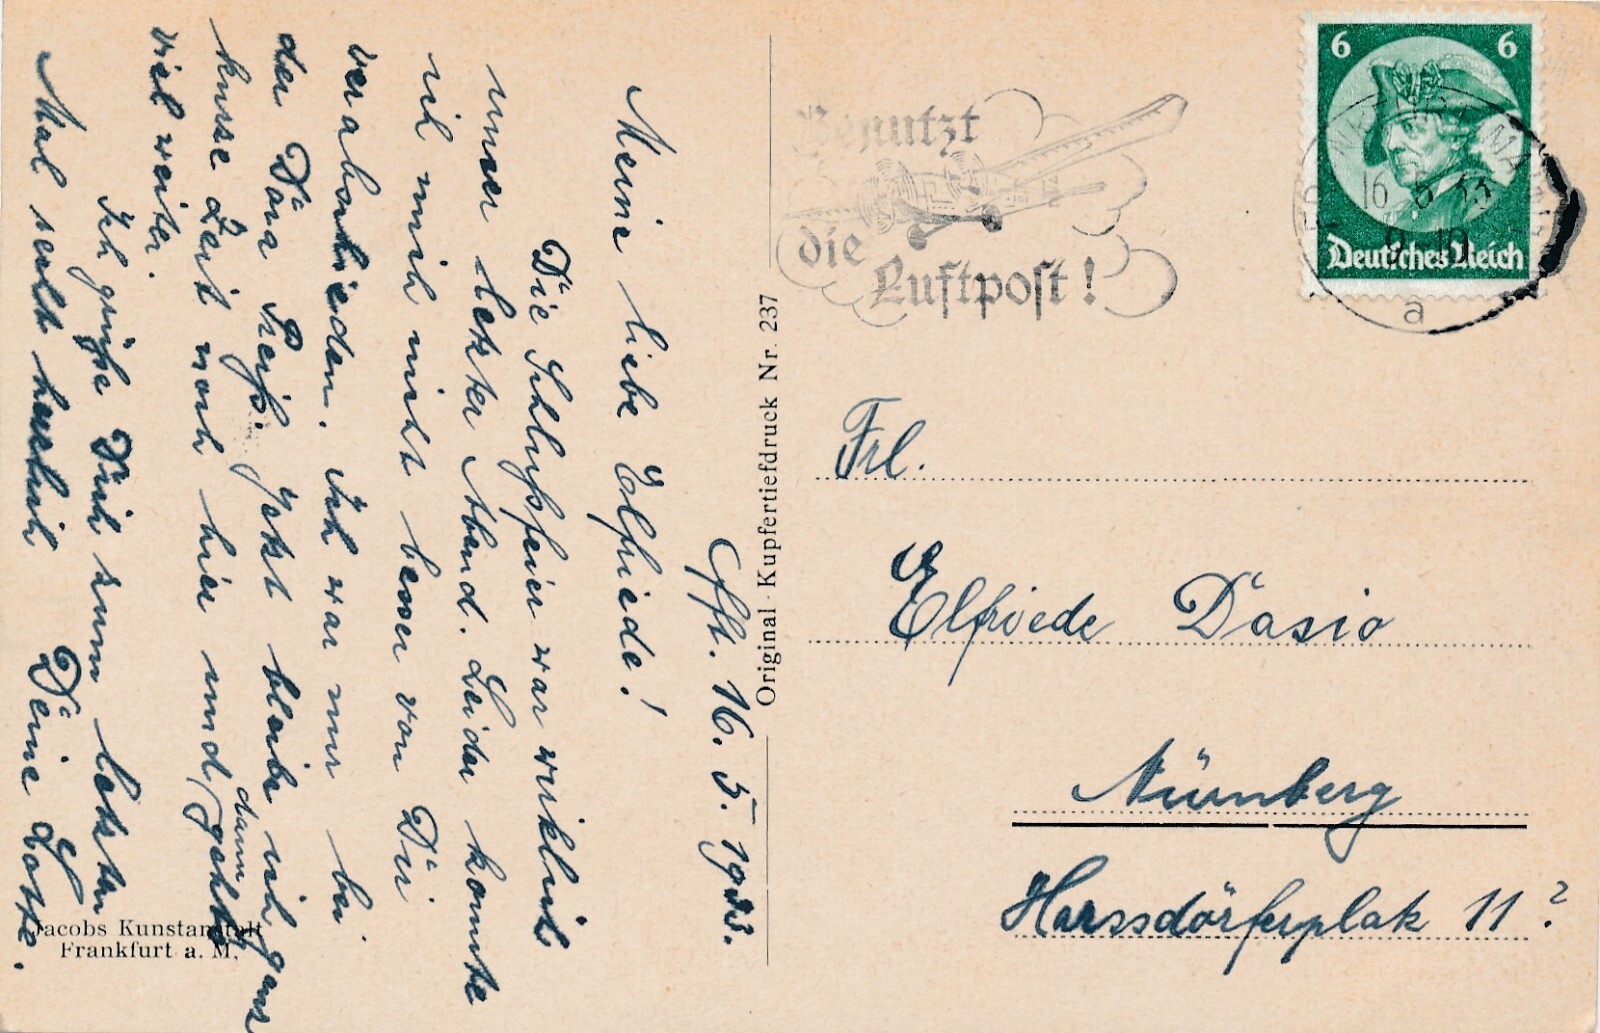 Fft. 16. 5. 1933.
Meine liebe Elfriede!
Die Schlußfeier war wirklich
unser letzter Abend. Leider konnte
ich mich nicht besser von Dir
verabschieden. Ich war nur bei
der Dora Preiß. Jetzt bleibe ich ganz
kurze Zeit noch hier und dann gehts
viel weiter.
Ich grüße Dich zum letzten
Mal recht herzlich Deine Lotte.
Jacobs Kunstanstalt
Frankfurt a. M.
Original-Kupfertiefdruck Nr. 237
Benutzt
die
Luftpost!
6 6
Deutsches Reich
16 5 33
9-10
a
Frl.
Elfriede Dasio
Nürnberg
Harssdörferplatz 11?